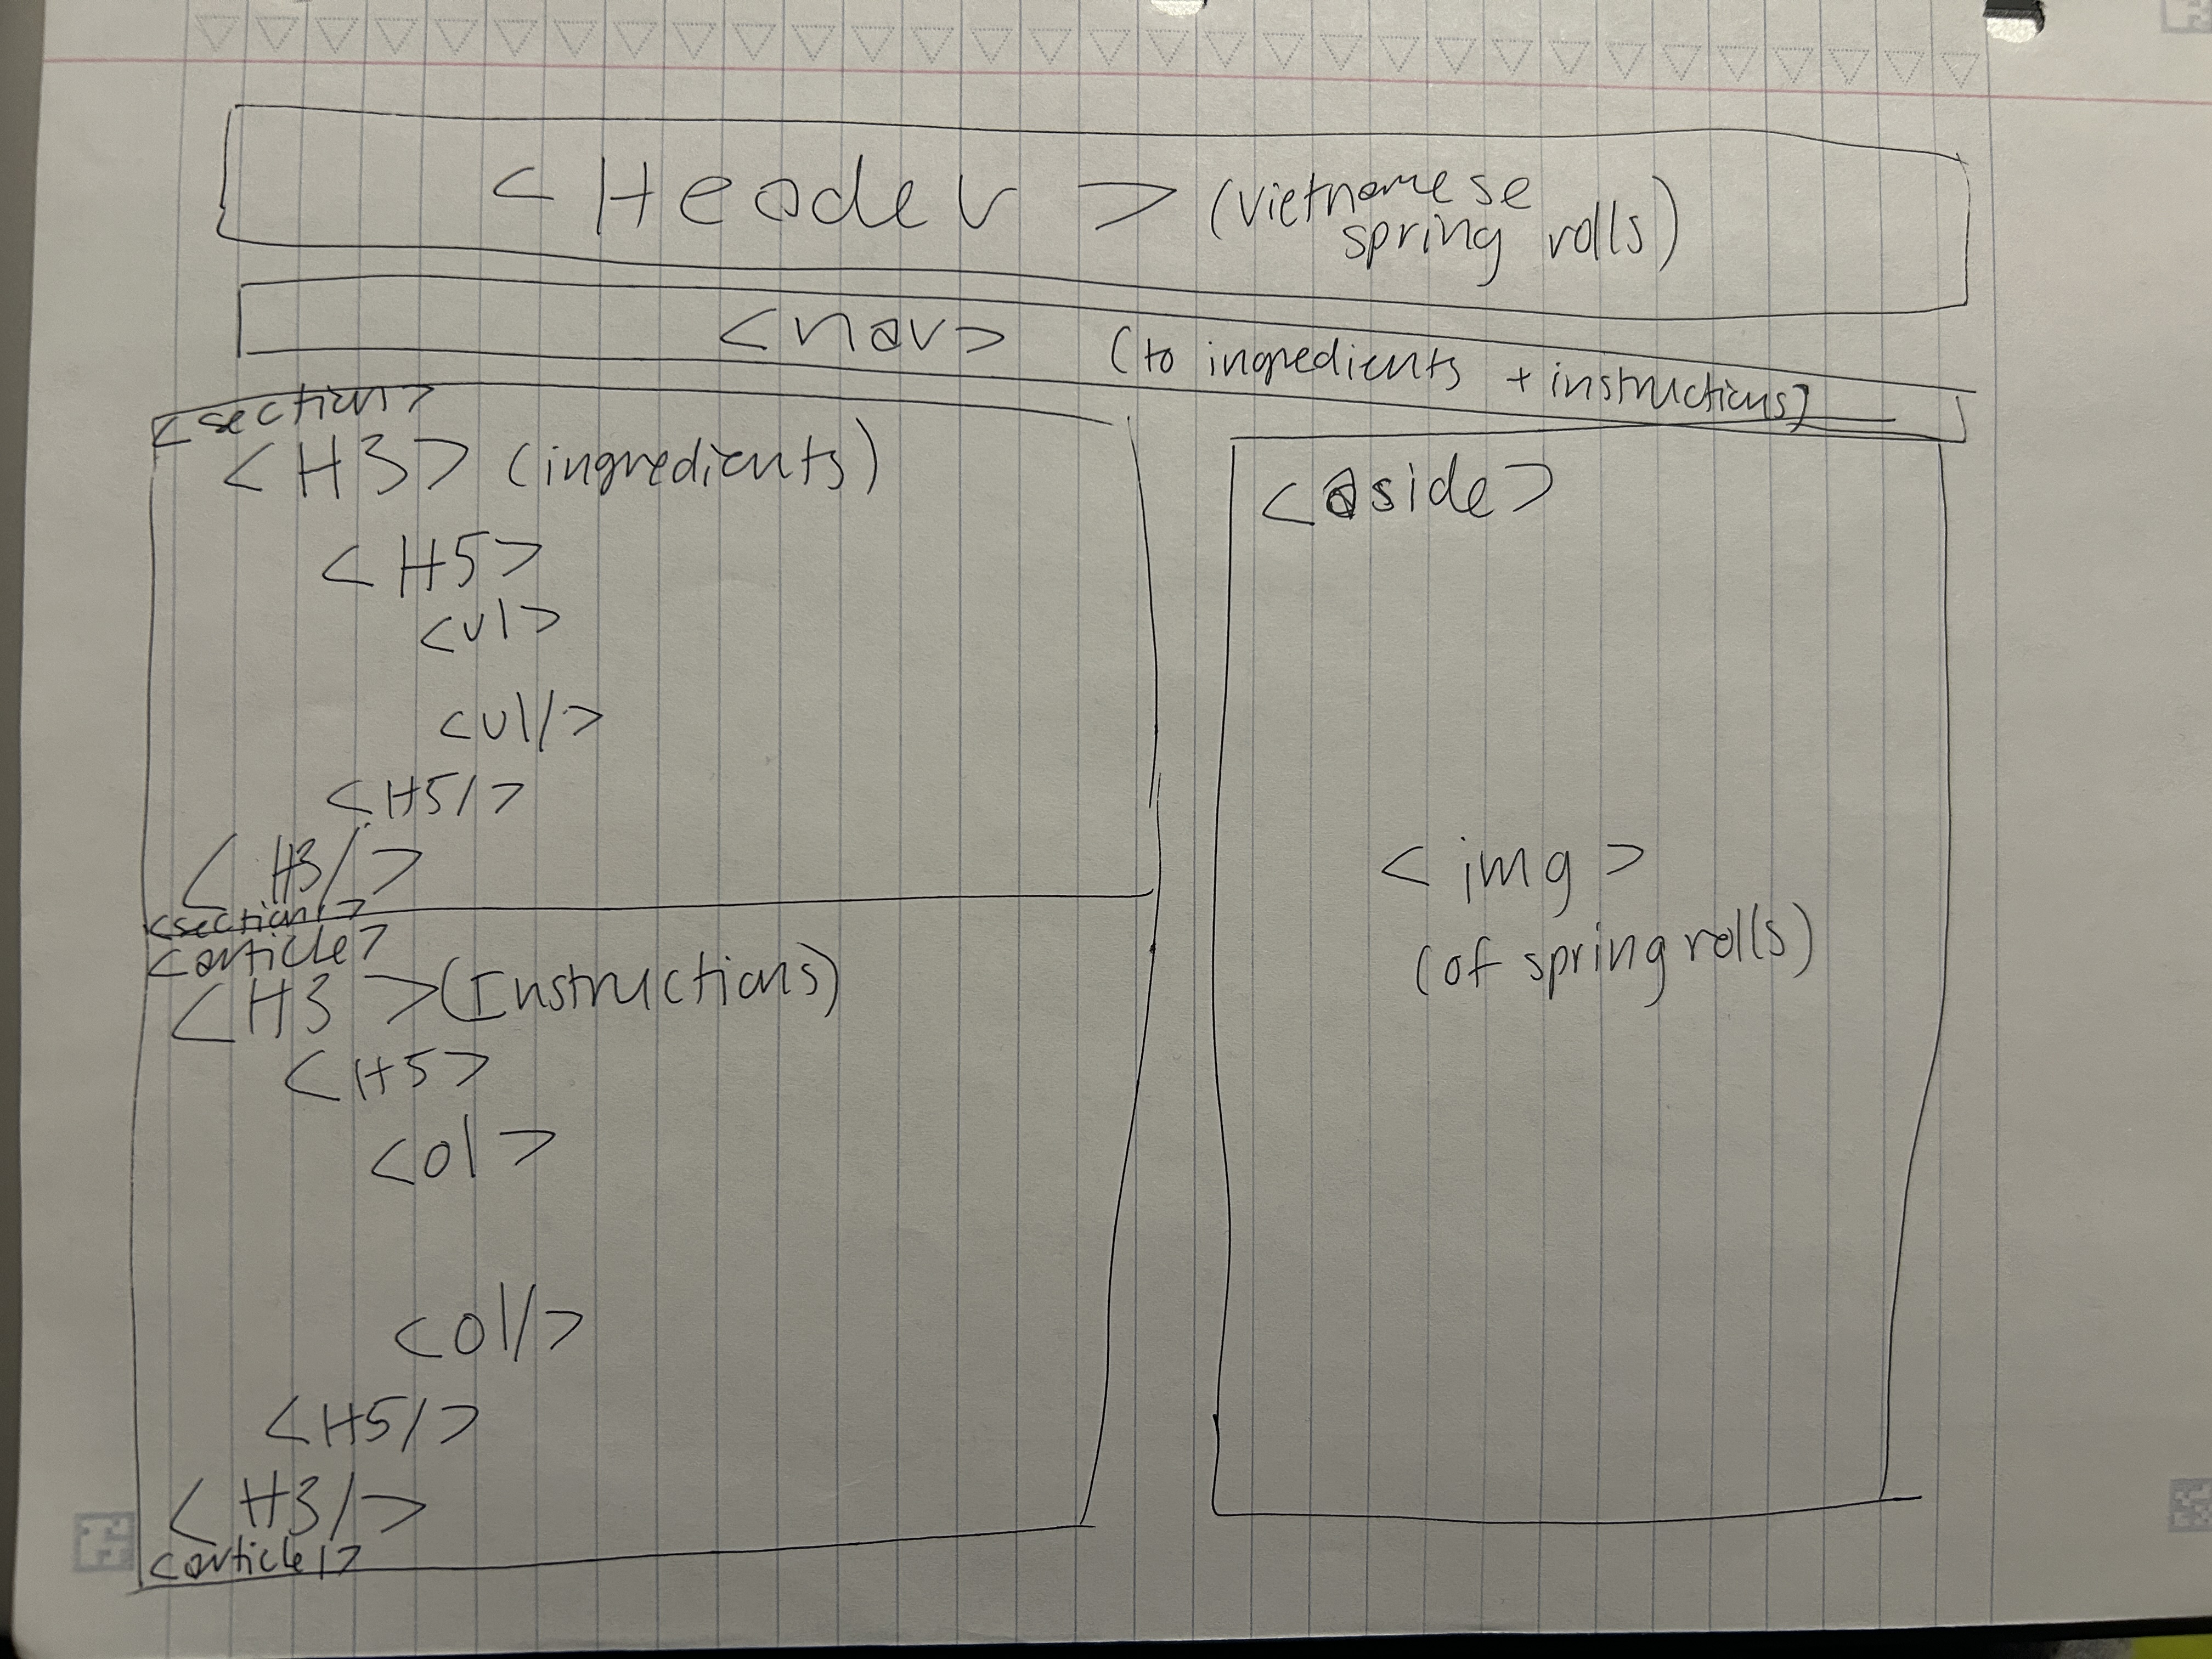 <Header> (Vietnamese
spring rolls)
<nav> (to ingredients + instructions)
<section>
<H3> (ingredients)
<H5>
<ul>
<ul/>
<H5/>
<H3/>
<section/>
<article>
<H3> (Instructions)
<H5>
<ol>
<ol/>
<H5/>
<H3/>
<article/>
<aside>
<img>
(of spring rolls)